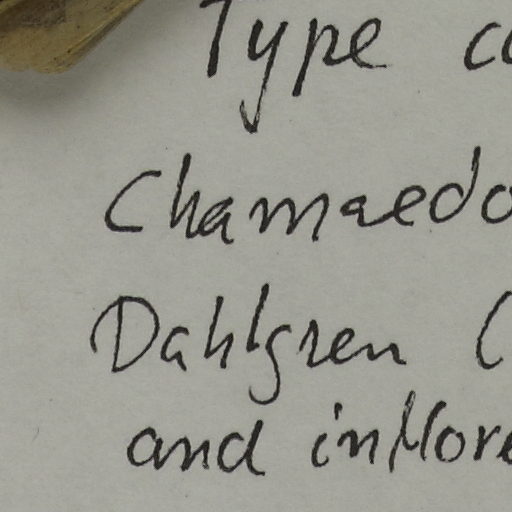 Type co
Chamaedo
Dahlgren (
and inflore